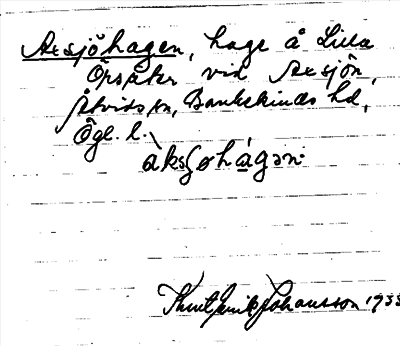 Axsjöhagen, hage å Lilla
Örsåker vid Axsjön,
Åtvids sn, Bankekinds hd,
Ögl. l.
aksʃøhágən.
Knut Johansson 1933